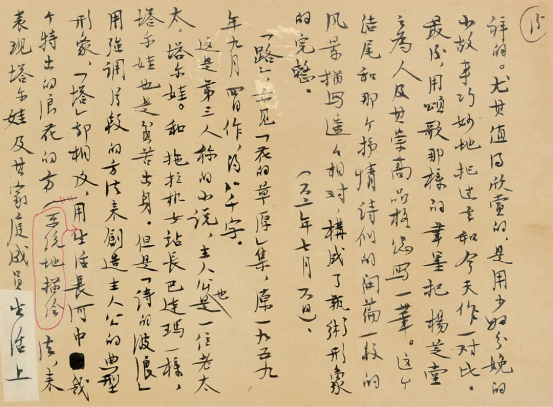 15
辞的。尤其值得欣赏的，是用少妇分娩的
小故事巧妙地把过去和今天作一对比。
最后用颂歌那样的笔墨把杨芝堂
之为人及其崇高品格总写一笔。这个
结尾和那个抒情诗似的开篇一般的
风景描写遥遥相对，构成了艺术形象
的完整。
（一九六二年七月八日）
「路」，又见「花的草原」集，原一九五九
年九月四日作，约八千字。
这是第三人称的小说，主人公也是一位老太
太，塔尔娃。和拖拉机女站长巴达玛一样，
塔尔娃也是贫苦出身。但是「诗的波浪」
用强调片段的方法来创造主人公的典型
形象，「路」却相反，用生活长河中或
个特出的浪花的方（系统地描绘）法，来
表现塔尔娃及其家庭成员生活上